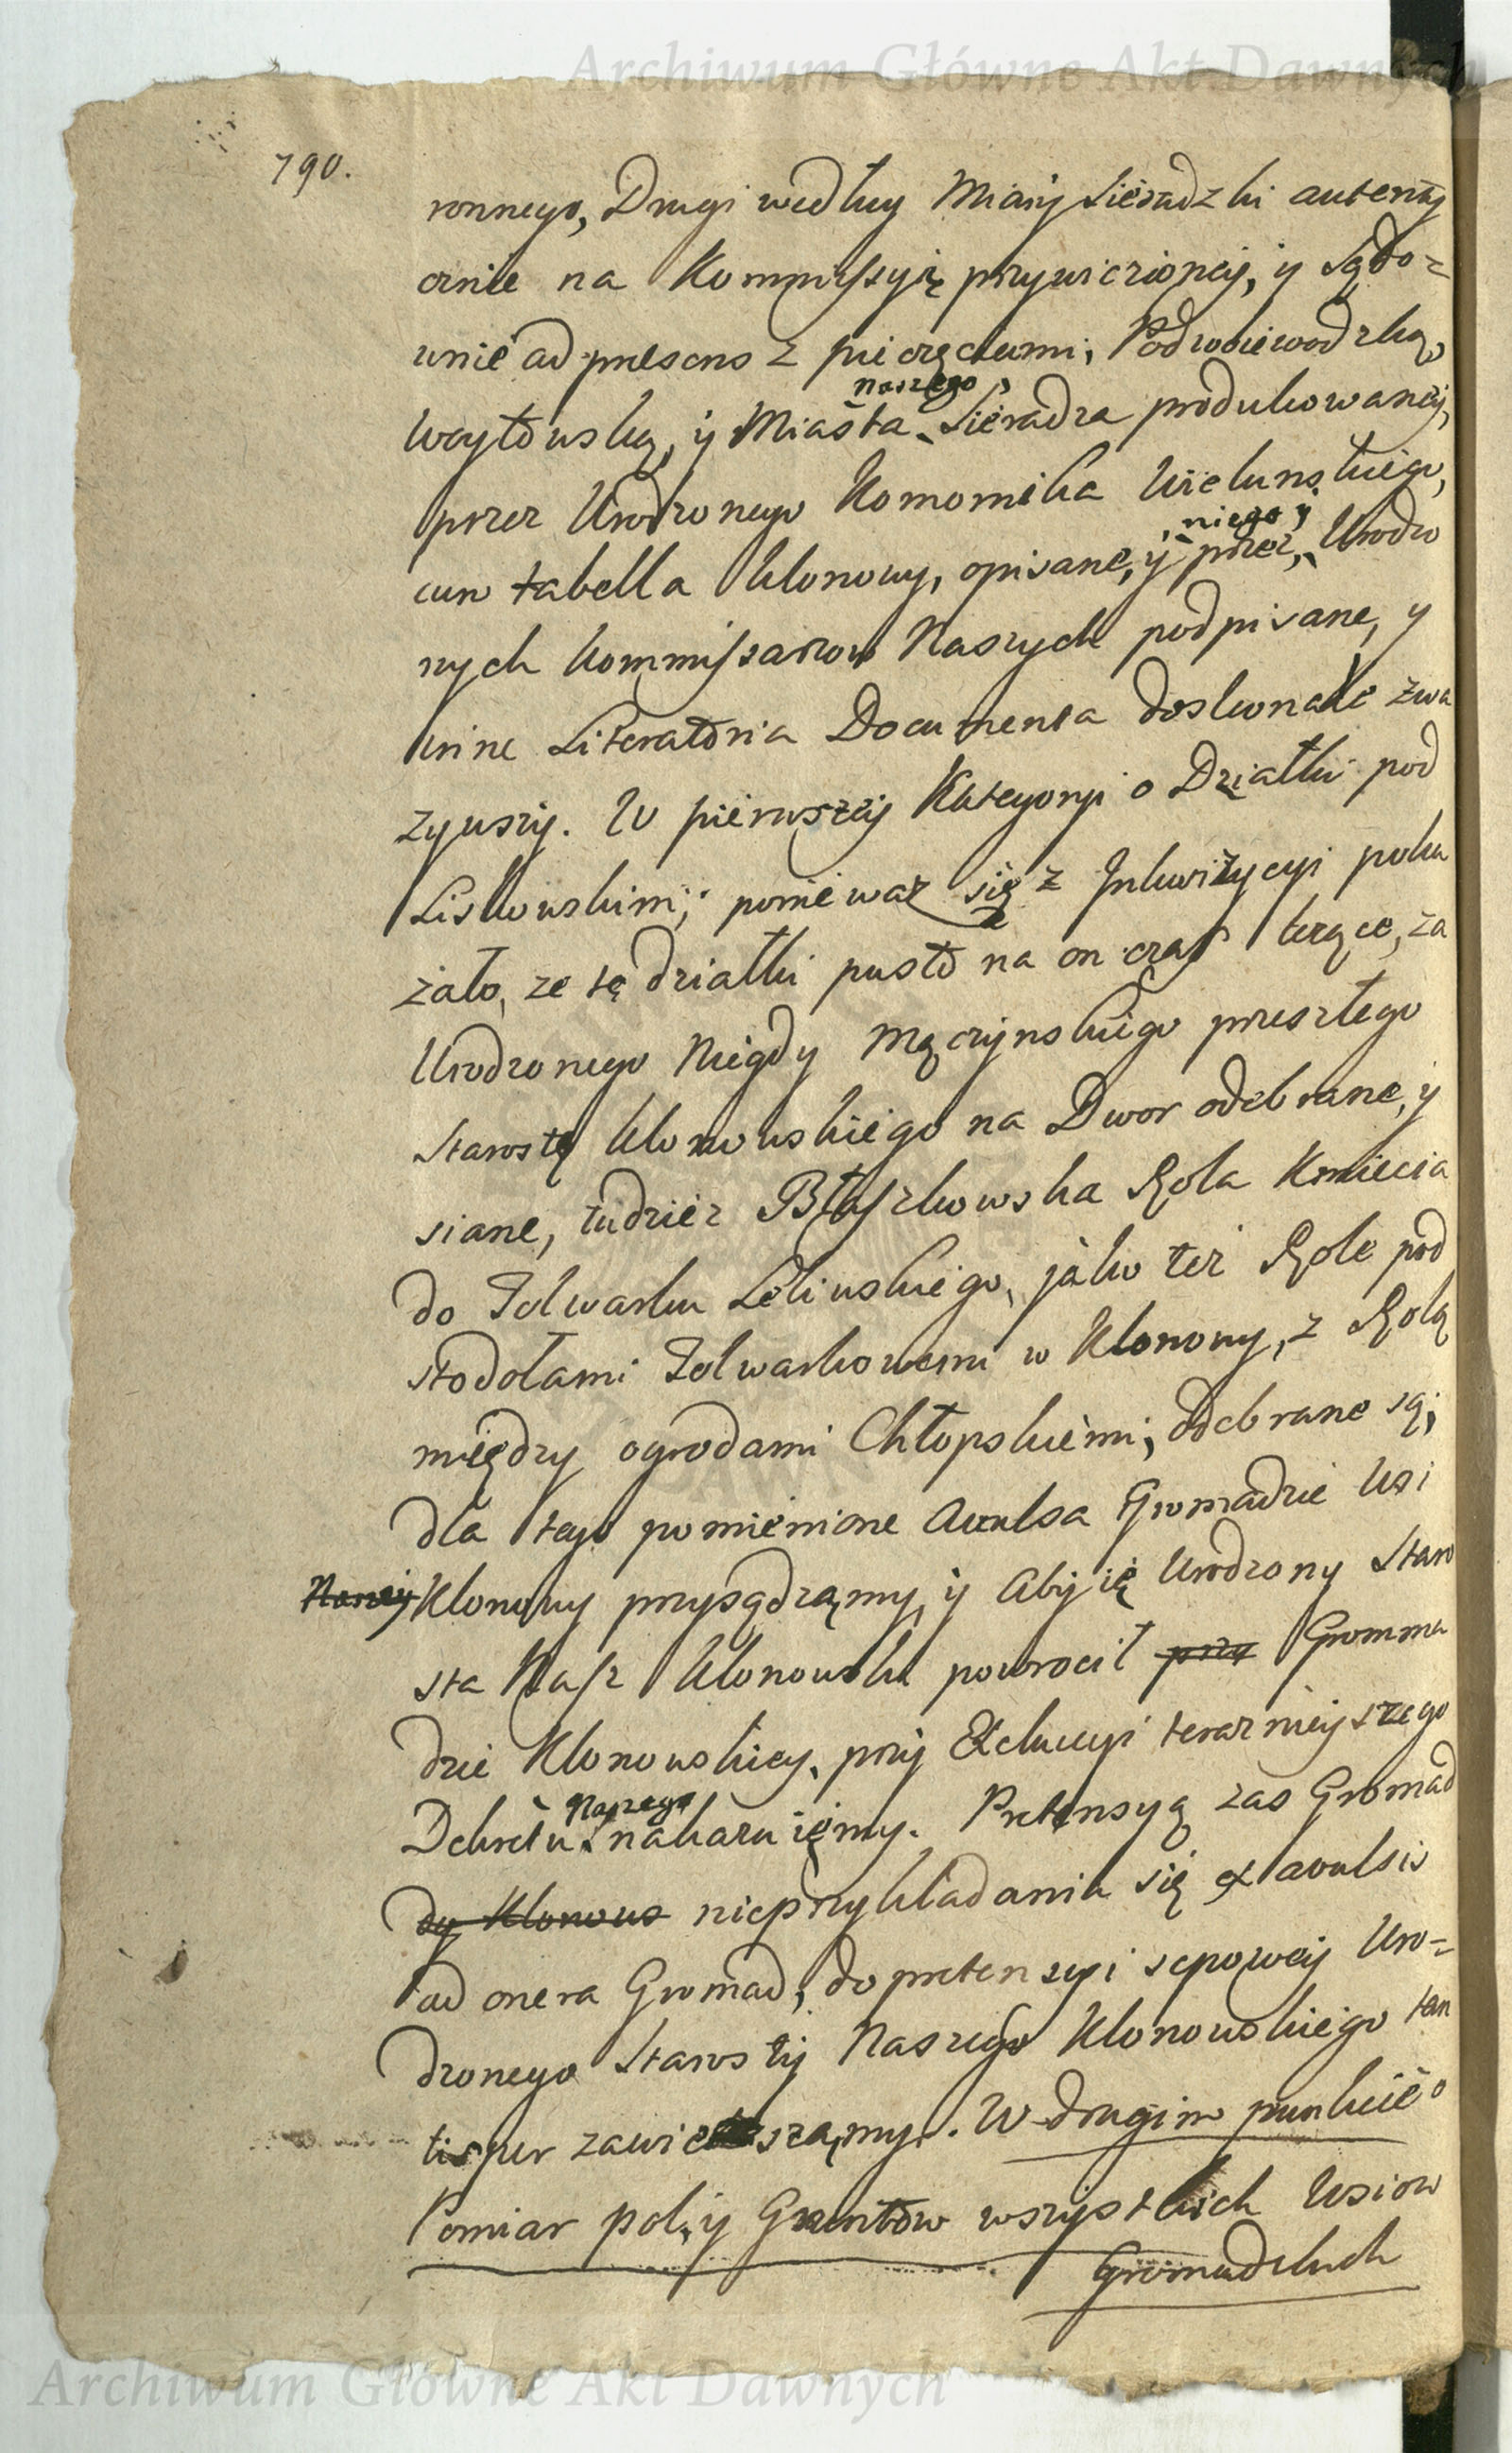 Archiwum Główne Akt Dawnych
790.
ronnego, Drugi według Miary Sieradzki autenty
cznie na Kommissyię przywiezioney, y Sądo=
wnie ad presens z pieczęciami, Podwoiewodzką,
Woytowską, y Miasta naszego Sieradza produkowaney,
przez Urodzonego Komornika Wielunskiego,
cum tabella Klonowy, opisane, y przez niego y Urodzo
nych Kommissarzow Naszych podpisane, y
inne Literatoria Documenta doskonale zwa
zywszy. W pierwszey Kategoryi o Działki pod
Liskowskim; poniewaz się z Inkwizycyi poka
zało, ze te działki pusto na on czas lezące, za
Urodzonego Niegdy Mączynskiego przeszłego
Starosty Klonowskiego na Dwor odebrane, y
siane, tudziez Błaszkowska Rola Kmiecia
do Folwarku Leliwskiego, jako tez Role pod
stodołami Folwarkowemi w Klonowy, z Rolą
między ogrodami Chłopskiemi, odebrane są;
dla tego pomienione Avulsa Gromadzie Wsi
Naszey Klonowy przysądzamy, y Aby ie Urodzony Staro
sta Nasz Klonowski powrocił przy Gromma
dzie Klonowskiey, przy Exekucyi teraznieyszego
Dekretu Naszego nakazuiemy. Pretensyą zas Gromad
dy Klonows nieprzykładania się ex avulsis
ad onera Gromad, do pretensyi sepowey Uro=
dzonego Starosty Naszego Klonowskiego tan
tisper zawieszamy. W drugim punkcie o
Pomiar pol, y Gruntow wszystkich Wsiow
Gromadzkich
Archiwum Główne Akt Dawnych